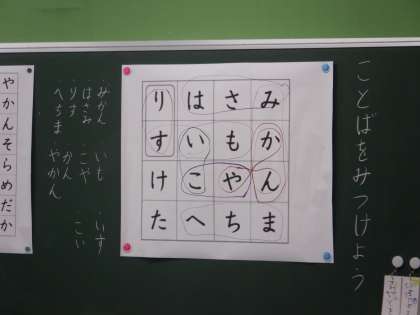 ことばをみつけよう
みかんま
さもやち
はいこへ
りすけた
みかん いも いす
はさみ こや こい
りす かん
へちま やかん
やかんそらめだか